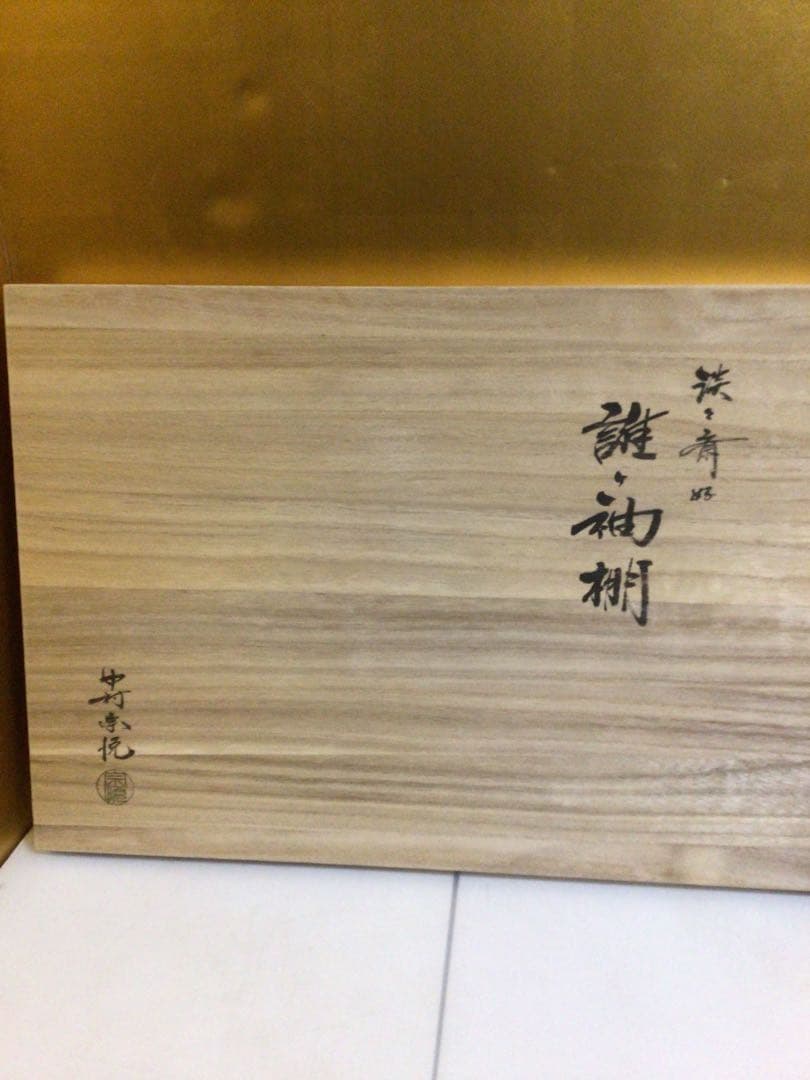 淡々斎好
誰ヶ袖棚
中村宗悦